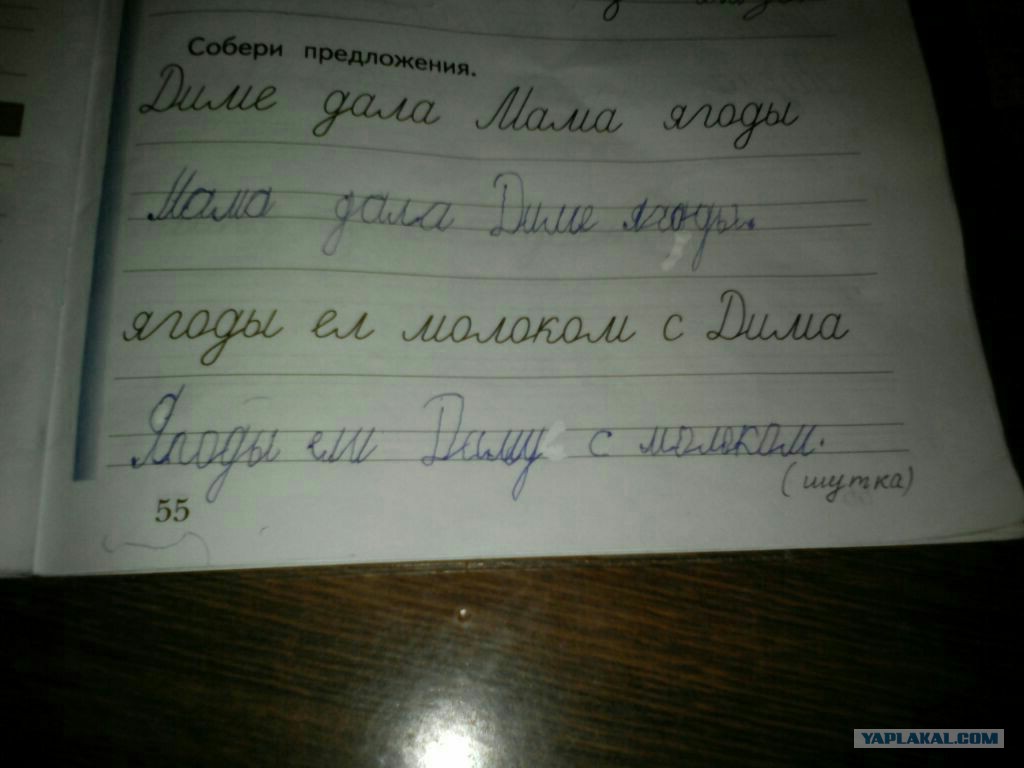 Собери предложения.
Диме дала Мама ягоды
Мама дала Диме ягоды.
ягоды ел молоком с Дима
Ягоды ели Диму с молоком.
(шутка)
55
YAPLAKAL.COM